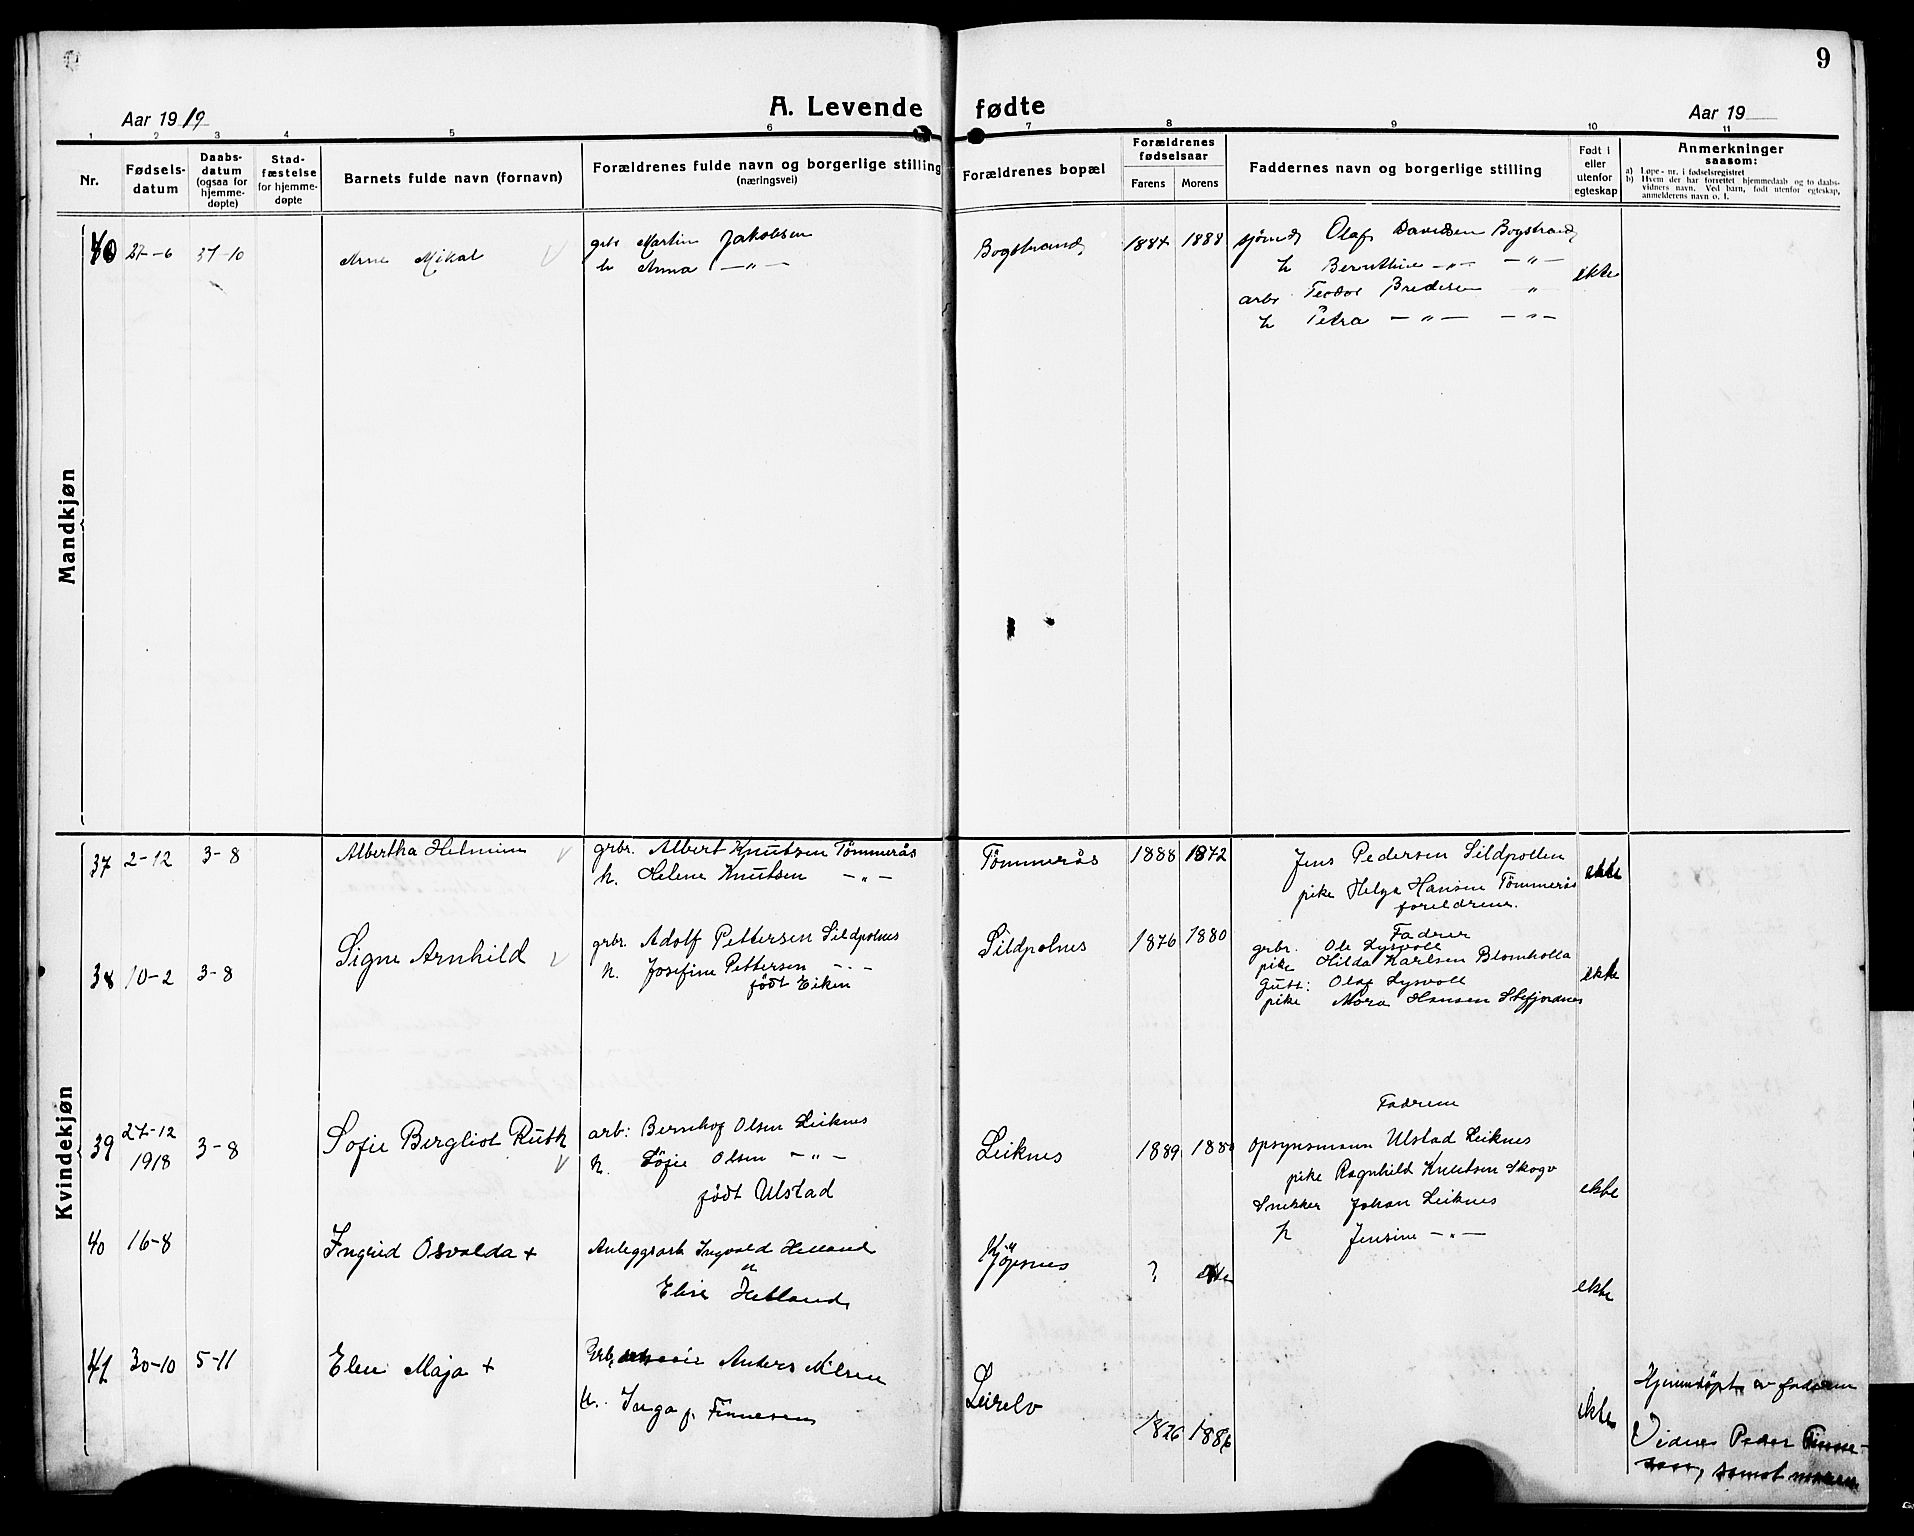 9
A. Levende fødte
Aar 1919
Aar 19
1 2 3 4 5 6 7 8 9 10 11
Nr.
Fødsels-
datum
Daabs-
datum
(ogsaa for
hjemme-
døpte)
Stad-
fæstelse
for hjemme-
døpte
Barnets fulde navn (fornavn)
Forældrenes fulde navn og borgerlige stilling
(næringsvei)
Forældrenes bopæl
Forældrenes
fødselsaar
Farens
Morens
Faddernes navn og borgerlige stilling
Født i
eller
utenfor
egteskap
Anmerkninger
saasom:
a) Løpe-nr. i fødselsregistret
b) Hvem der har forrettet hjemmedaab og to daabs-
vidners navn. Ved barn, født utenfor egteskap,
anmelderens navn o. l.
Mandkjøn
40
Arne Mikal
grbr Martin Jakobsen
h Anna —"—
Bogstrand
1884 1888
Olaf Davidsen Bogstrand
h Bernthine —"— —"—
arbr Teodor Bredesen "
h Petra —"— —"—
ekte
Kvindekjøn
37 2-12 3-8
Albertha Helmine
grbr. Albert Knutsen Tømmerås
h. Helene Knutsen —"—
Tømmerås
1888 1872
Jens Pedersen Sildpollen
pike Helga Hansen Tømmerås
foreldrene.
ekte
38 10-2 3-8
Signe Arnhild
grbr. Adolf Pettersen Sildpolnes
h. Josefine Pettersen —"—
født Eiken
Sildpolnes
1876 1880
Fadrer
grbr. Ole Lysvoll
pike Hilda Karlsen Blomholla
Gutt: Olaf Lysvoll
pike Hansen
ekte
39 27-12
1918 3-8
Sofie Bergliot Ruth
arb: Bernhof Olsen Leiknes
h. Sofie Olsen —"—
født Ulstad
Leiknes
1889 1880
Fadrene
opsynsmann Ulstad Leiknes
pike Ragnhild Knutsen
Snekker Johan Leiknes
h Jensine —"—
ekte
40 16-8
Ingrid Osvalda +
Anleggsarb Ingvald Helland
Elise
Kjøpsnes
?
ekte
41 30-10 5-11
Elen Maja +
Anders Nilsen
h. Inga f. Finnesen
Leirelv
1876 1886
ekte
Hjemmedøpt av faderen
Vidner Peder
samt moren